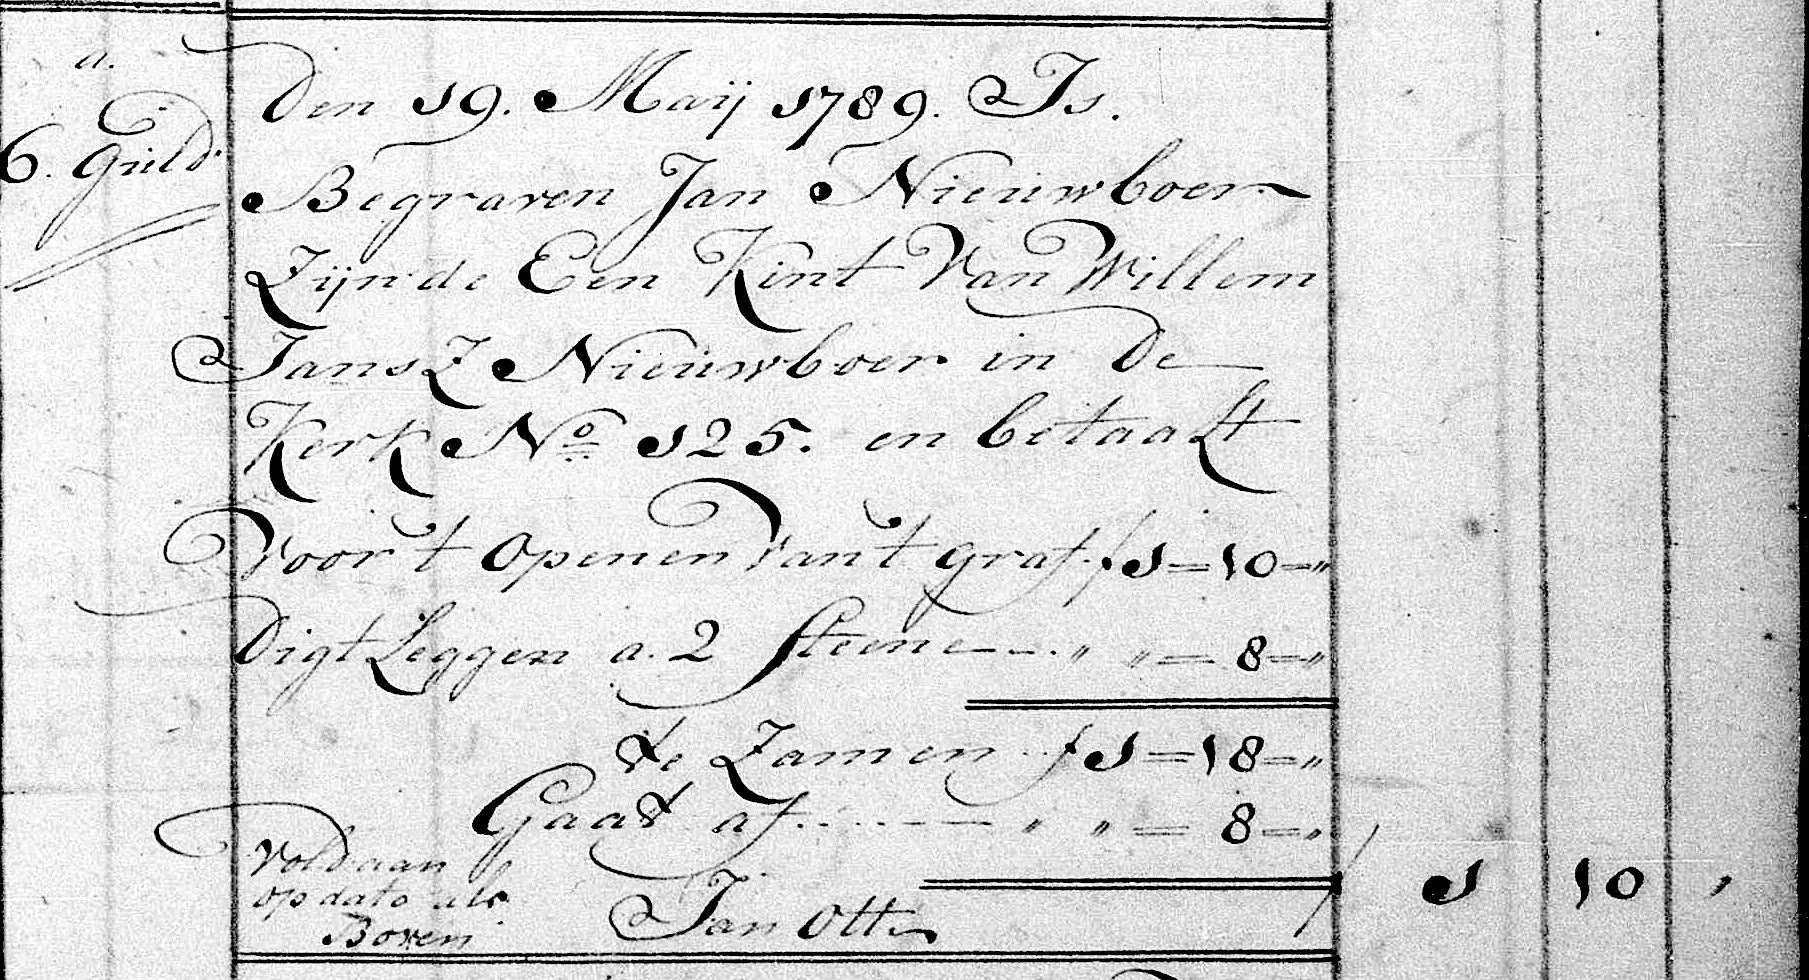 a.
6. Guld.
Den 19. Maij 1789. Is.
Begraven Jan Nieuwboer
Zijnde Een Kint Van Willem
JansZ Nieuwboer in De
Kerk No 125. en betaalt
Voor t openen Van t graf. f 1=10=„
Digt Leggen a. 2 Steene--.„ „= 8=„
te Zamen .. f 1=18=„
Gaat af......— „ „= 8=„
Voldaan
op dato als
Boven
Jan Otto
1 10 ,